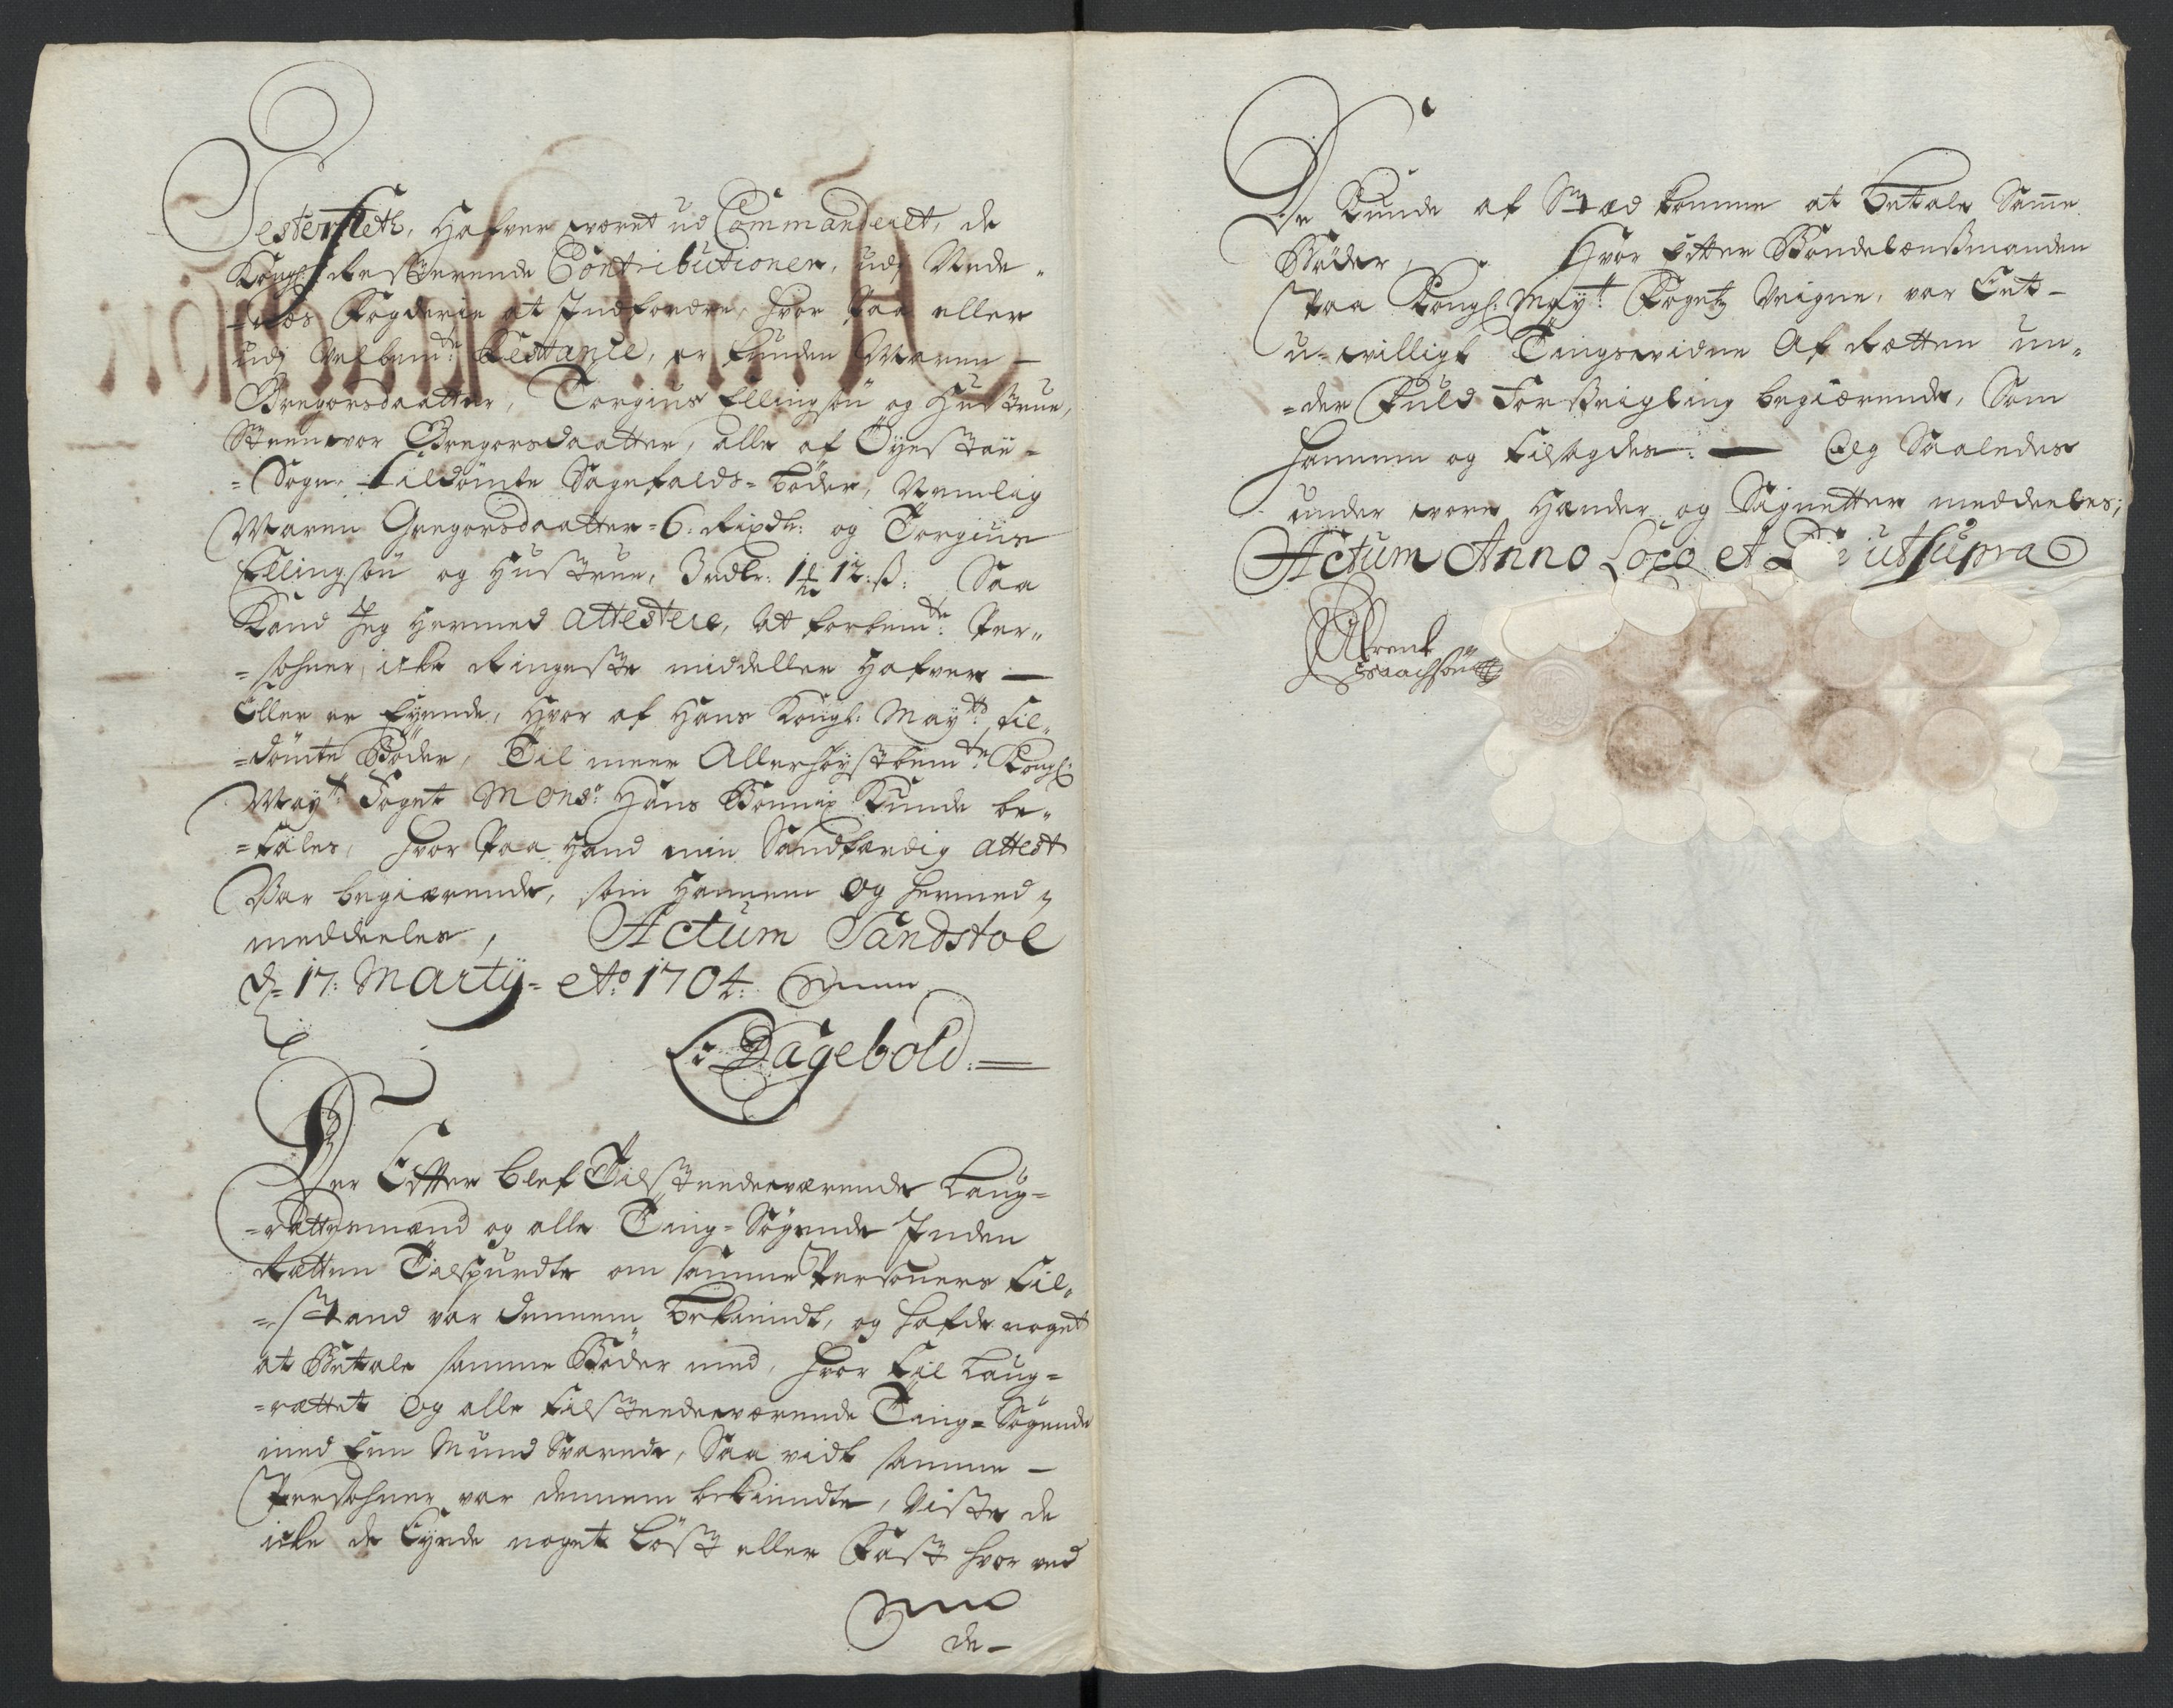 Jesterfleth, Hafver været ud Commanderet, de
Kongl: Resterende Contributioner, udj Nede-
-næs Fogderie at Indfordre, hvor Paa eller
udj Velbemte: Restance, er funden Maren —
Gregorsdaatter, Torgius Ellingsøn og Hustrue,
Steenvor Gregorsdaatter, alle af Øyestad-
=Sogn. tildømte Sagefalds-bøder, Nemlig
Maren Gregorsdaatter = 6: Rixdr: og Torgius
Ellingsøn og Hustrue, 3 rdlr: 1 ½ 12: ß: Saa
Kand Jeg Hermed attestere, at forbemte: Per-
=sohner, icke Ringeste middeller Hafver —
Eller er Eyende, Hvor af Hans Kongl: Mayts: til-
=dømte Bøder, Til meer Allerhøystbemte Kongl:
Mayts: Foget Monsr: Hans Bonnix Kunde be-
=tales, hvor Paa Hand min Sandfærdig attest
Var begiærende, som Hannem og hermed
meddeeles, Actum Sandstoe
d= 17: Martij = Ao: 1704.
F: Dagebold:=
Her Efter blef Tilstædeværende Laug-
=rettesmænd og alle Ting-Søgende Inden
Retten Tilspurdte om samme Personers til-
=stand var dennem bekiendt, og hafde noget
at Betale samme Bøder med, hvor til Laug-
-rættet og alle tilstædeværende Ting-Søgende
med Een Mund Svarede, Saa vidt samme —
Persohner var dennem bekiendte, Viste de
icke de Eyede noget Løst eller Fast hvor ved
de —
De Kunde af Stæd komme at betale Samme
Bøder, Hvor Efter Bondelensmanden
Paa Kongl: Mayts: Fogets Veigne, var Eet-
u-willigt Tingsvidne Af Retten un-
=der Fuld Forseigling begiærende, Som
hannem og tilsagdes: — Og Saaledes
under vore Hænder og Signetter meddeeles;
Actum Anno Loco et Die ut supra
Arent
Isaachsøn